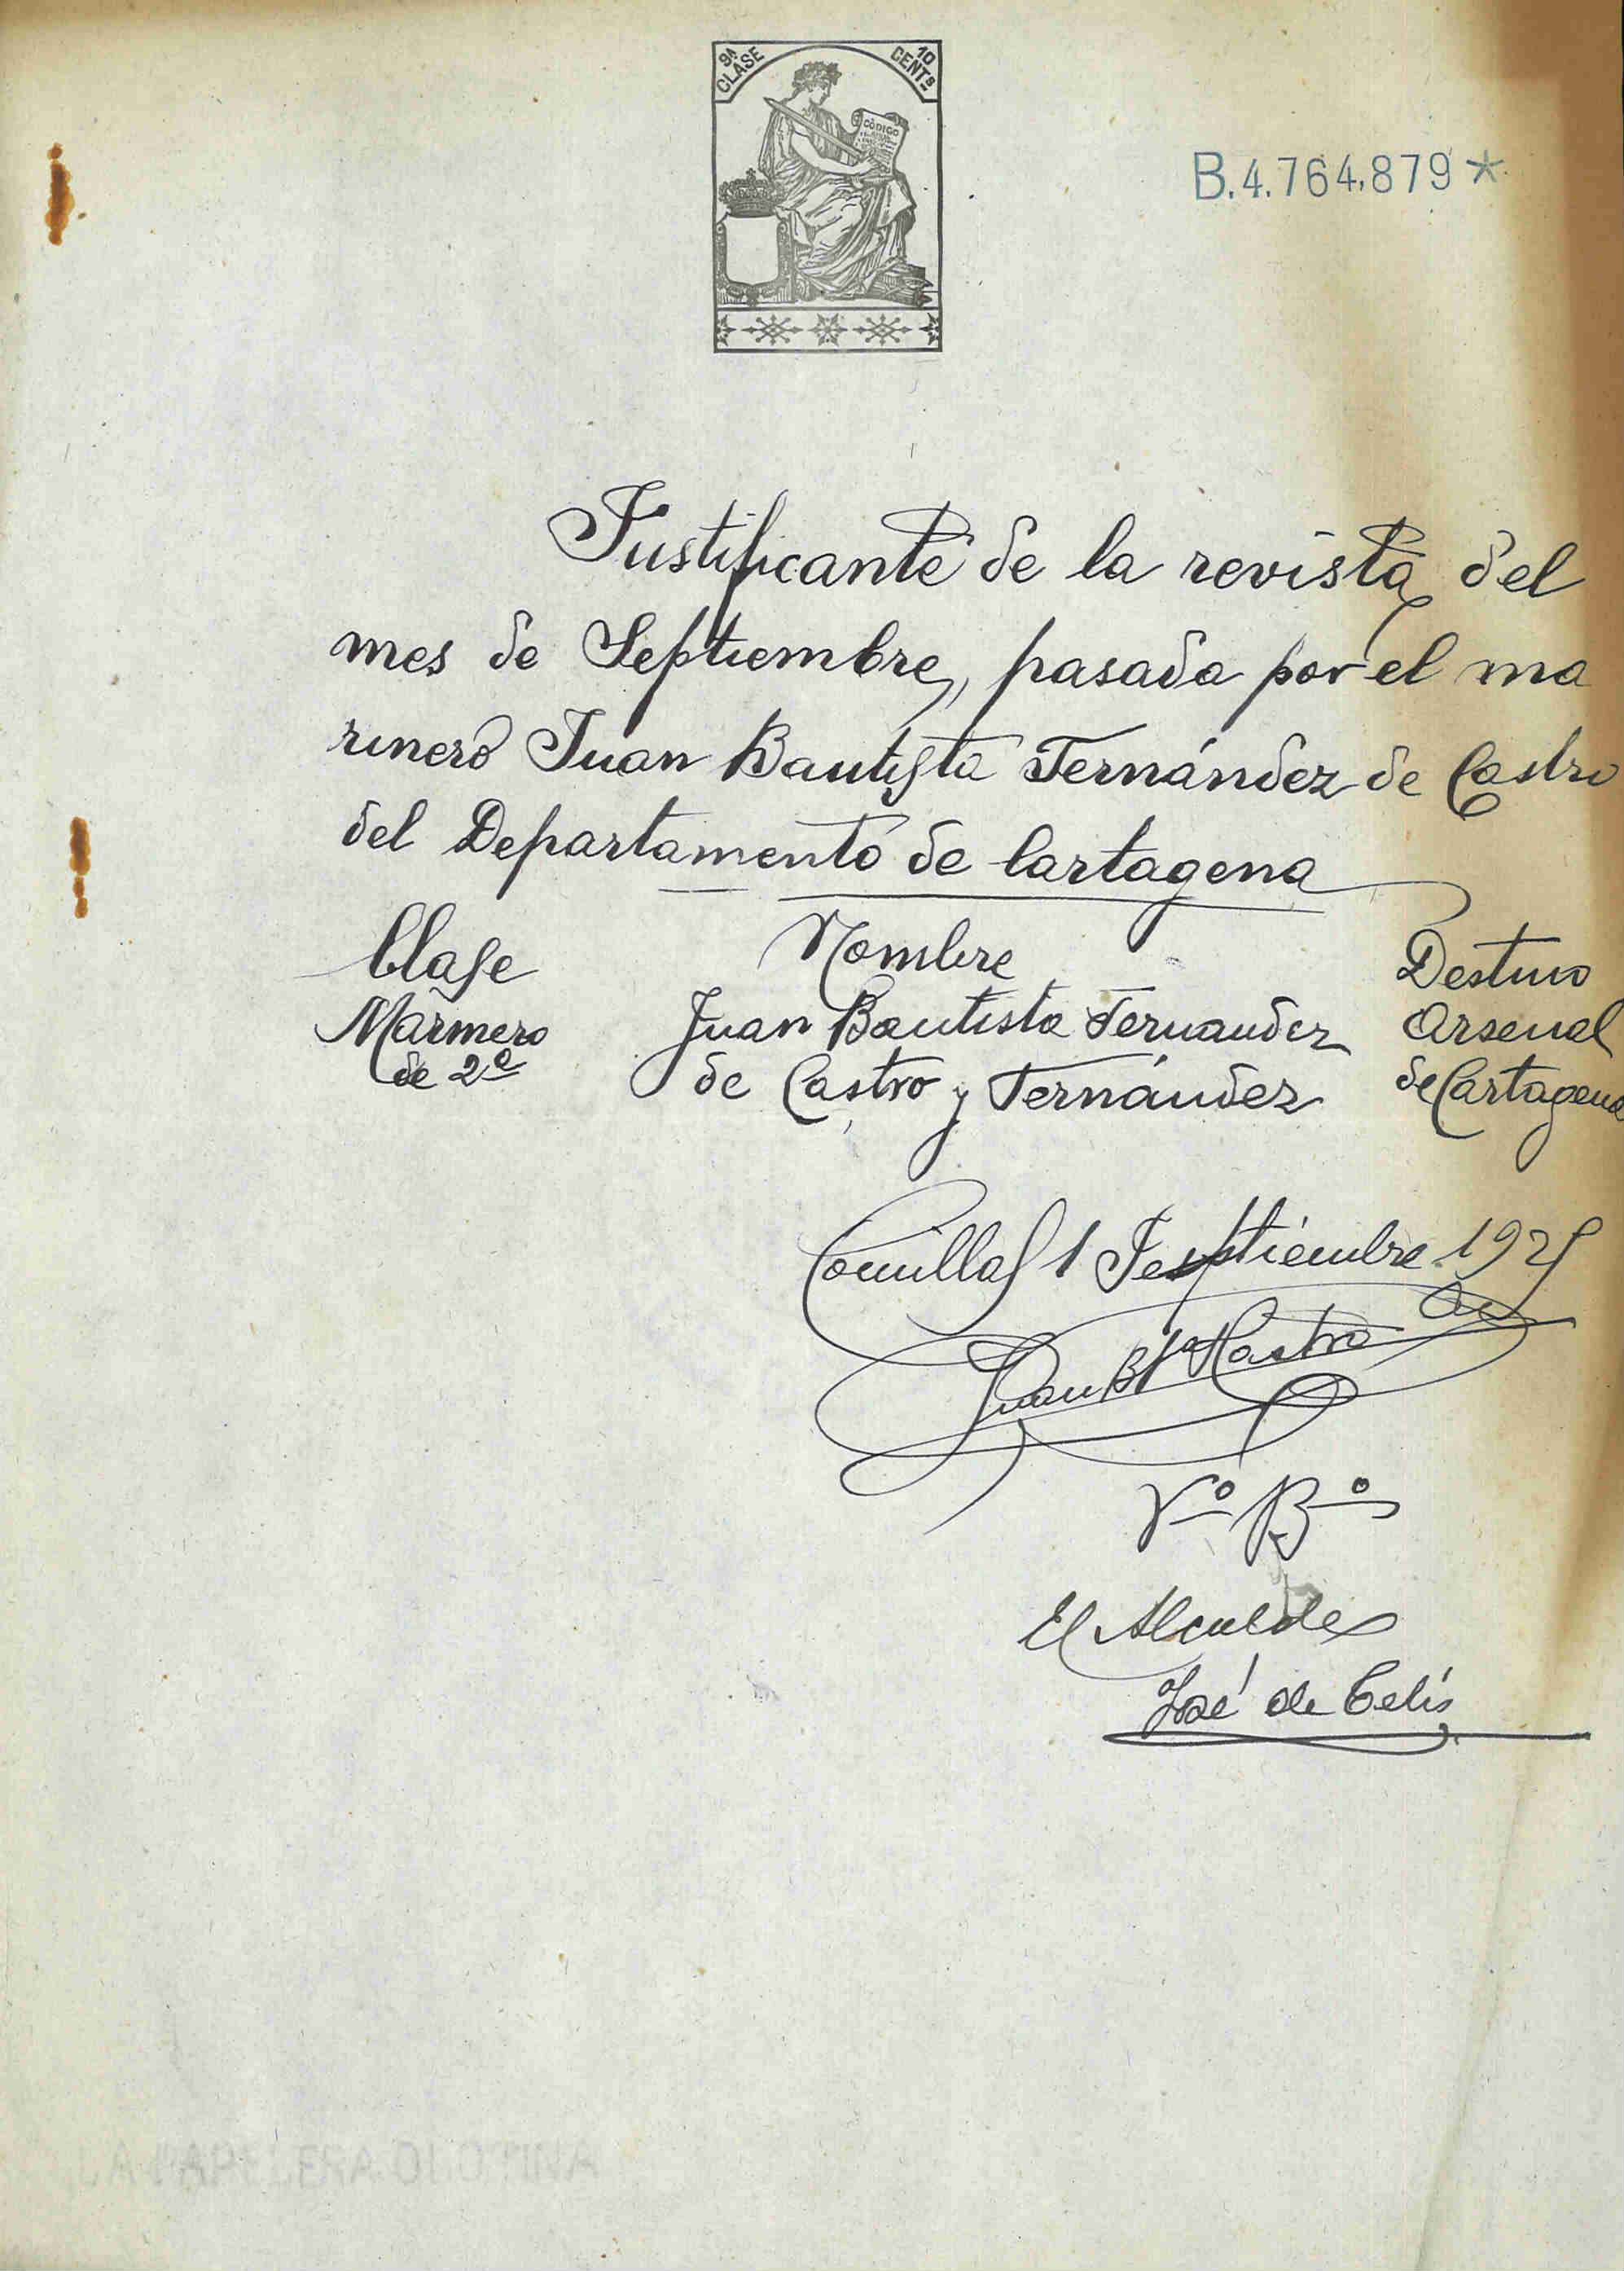 9ª CLASE
10 CENTS
CÓDIGO
B.4.764.879*
Justificante de la revista del
mes de Septiembre, pasada por el ma
rinero Juan Bautista Fernández de Castro
del Departamento de Cartagena
Clase Nombre Destino
Marinero Juan Bautista Fernandez Arsenal
de 2ª de Castro y Fernández de Cartagena
Comillas 1 Septiembre 1925
Juan Bta Castro
Vº Bº
El Alcalde
José de Celis
LA PAPELERA OLOTINA